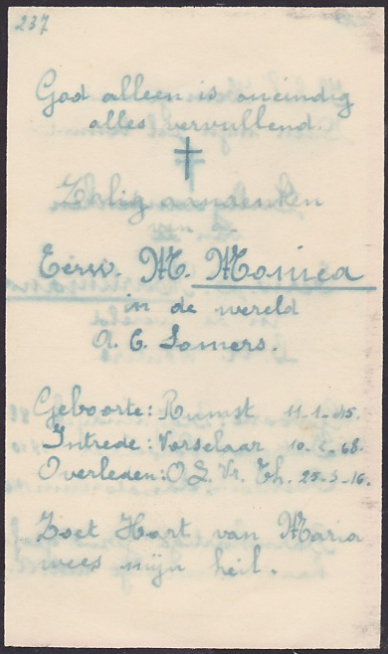 237
God alleen is oneindig
alles vervullend.
Zalig aandenken
van
Eerw. M. Monica
in de wereld
A. C. Somers.
Geboorte: Rumst 11-1-45.
Intrede: Vorselaar 68.
Overleden: O. L. Vr. Th. 25-3-16.
Zoet Hart van Maria
wees mijn heil.